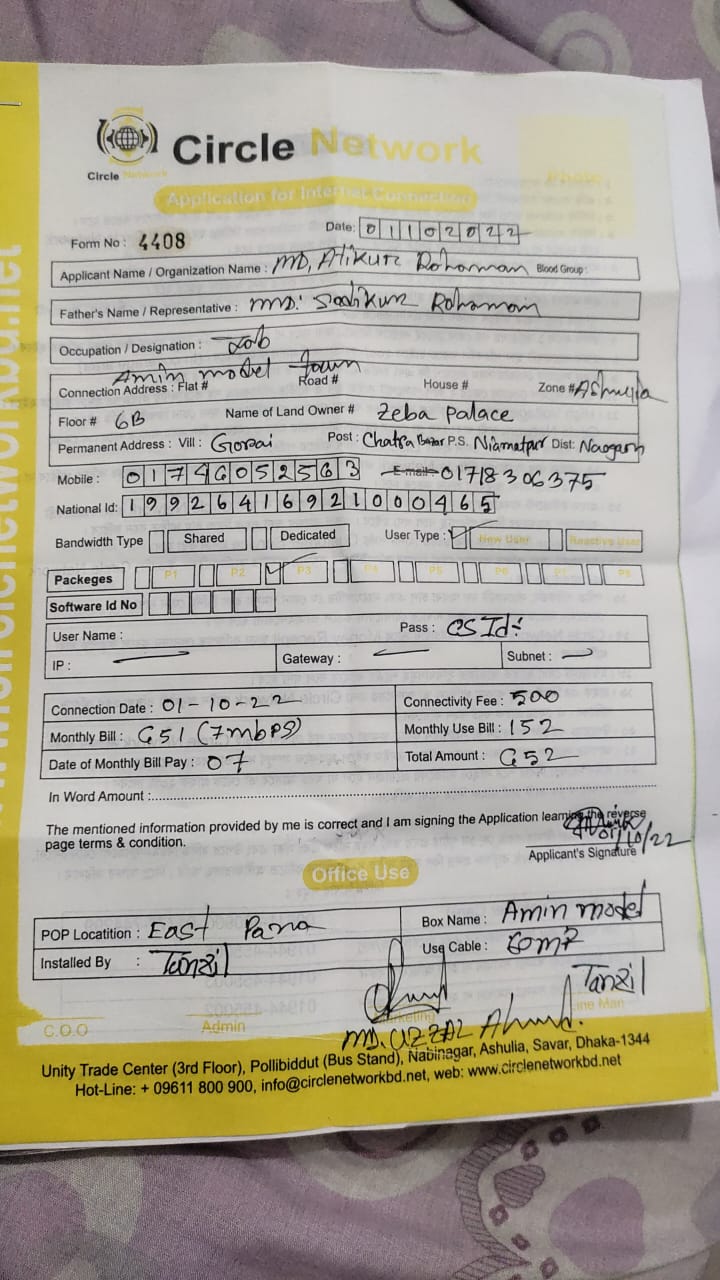 Circle Network
Circle Network
Photo
Application for Internet Connection
Form No : 4408
Date: 01102022
Applicant Name / Organization Name : MD, Atikur Rohoman Blood Group:
Father's Name / Representative : MD: Sadikur Rohoman
Occupation / Designation : Job
Amin model town
Connection Address : Flat # Road # House # Zone # Ashulia
Floor # 6B Name of Land Owner # Zeba palace
Permanent Address : Vill : Gorai Post : Chatra Bazar P.S. Niamatpur Dist: Naogaon
Mobile : 01746052563 E-mail: 01718306375
National Id: 19926416921000465
Bandwidth Type Shared Dedicated User Type : New User Reactive User
Packeges P1 P2 P3 P4 P5 P6 P7 P8
Software Id No
User Name : Pass : CS Id:
IP : Gateway : Subnet :
Connection Date : 01-10-22 Connectivity Fee : 500
Monthly Bill : 651 (7mbps) Monthly Use Bill : 152
Date of Monthly Bill Pay : 07 Total Amount : 652
In Word Amount :
The mentioned information provided by me is correct and I am signing the Application learning the reverse
page terms & condition.
01/10/22
Applicant's Signature
Office Use
POP Locatition : East Para Box Name : Amin model
Installed By : Tanzil Use Cable :
Tanzil
C.O.O Admin Marketing Line Man
MD. UZZAL Ahmed.
Unity Trade Center (3rd Floor), Pollibiddut (Bus Stand), Nabinagar, Ashulia, Savar, Dhaka-1344
Hot-Line: + 09611 800 900, info@circlenetworkbd.net, web: www.circlenetworkbd.net
www.circlenetworkbd.net